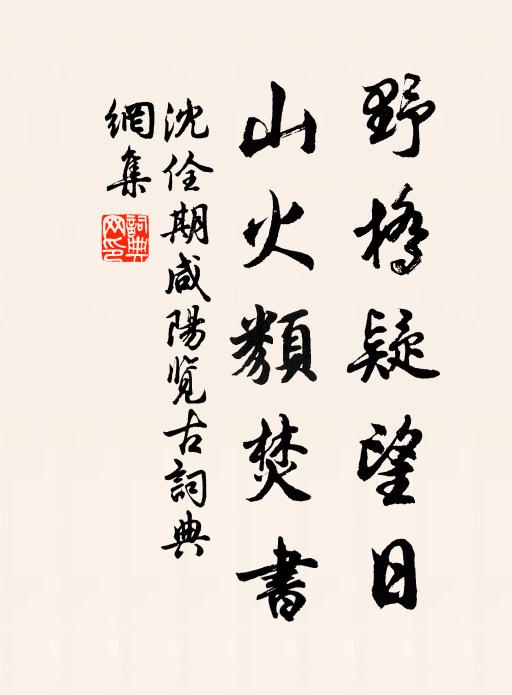 野橋疑望日
山火類焚書
沈佺期咸陽覽古詞典
網集
詞典網印